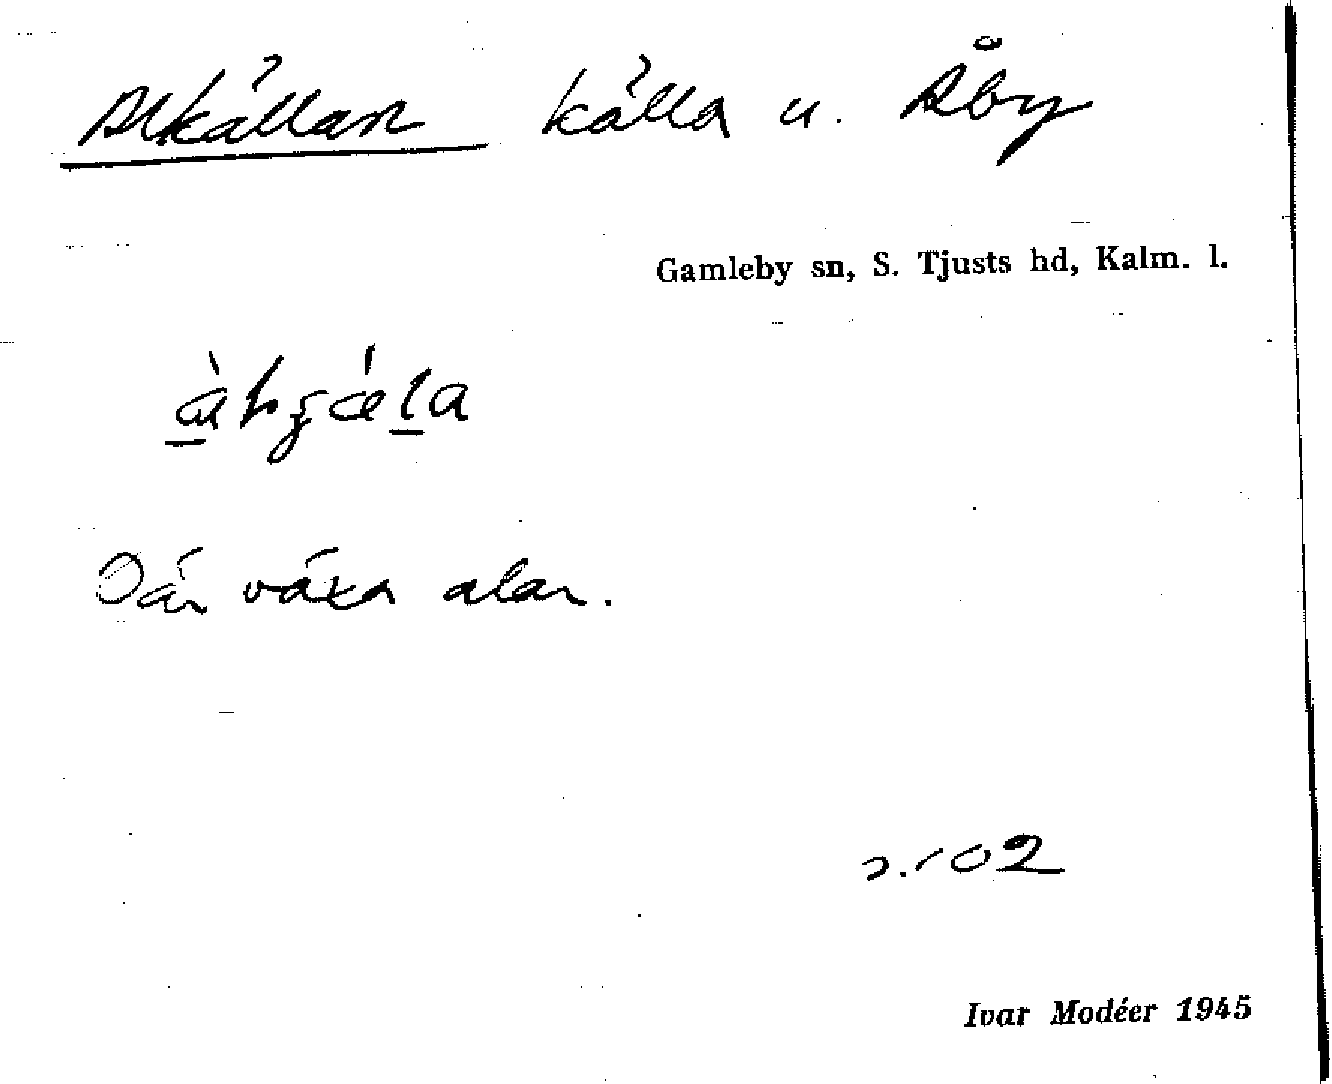 Alkällan källa u. Åby
Gamleby sn, S. Tjusts hd, Kalm. l.
Där växa alar.
s. 102
Ivar Modéer 1945